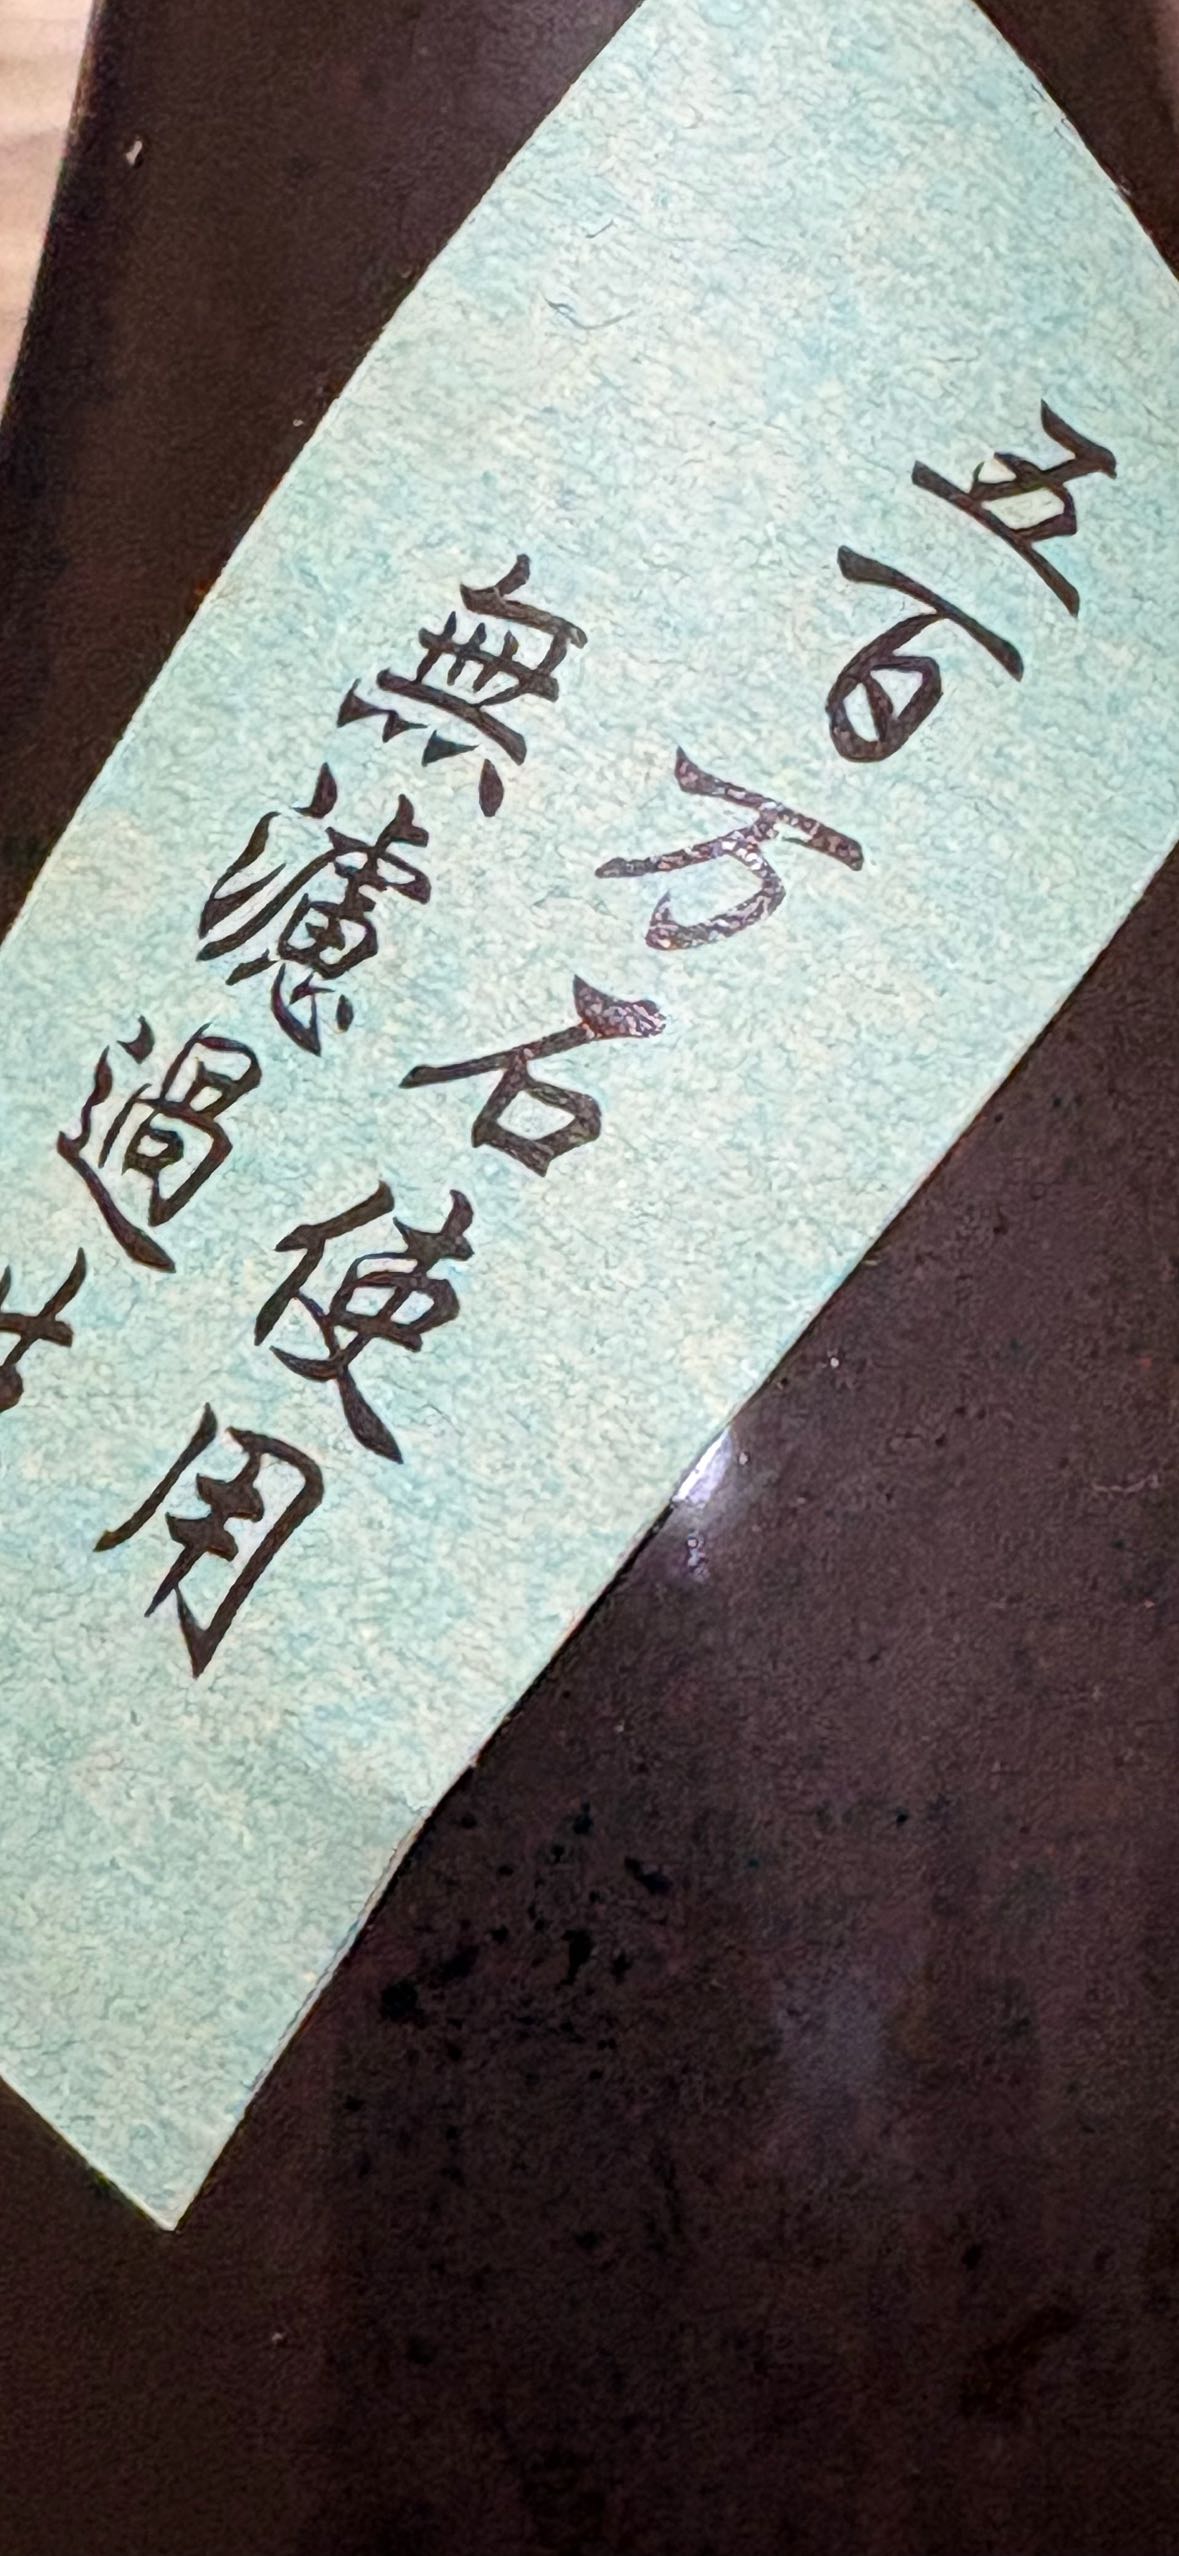 五百万石使用
無濾過